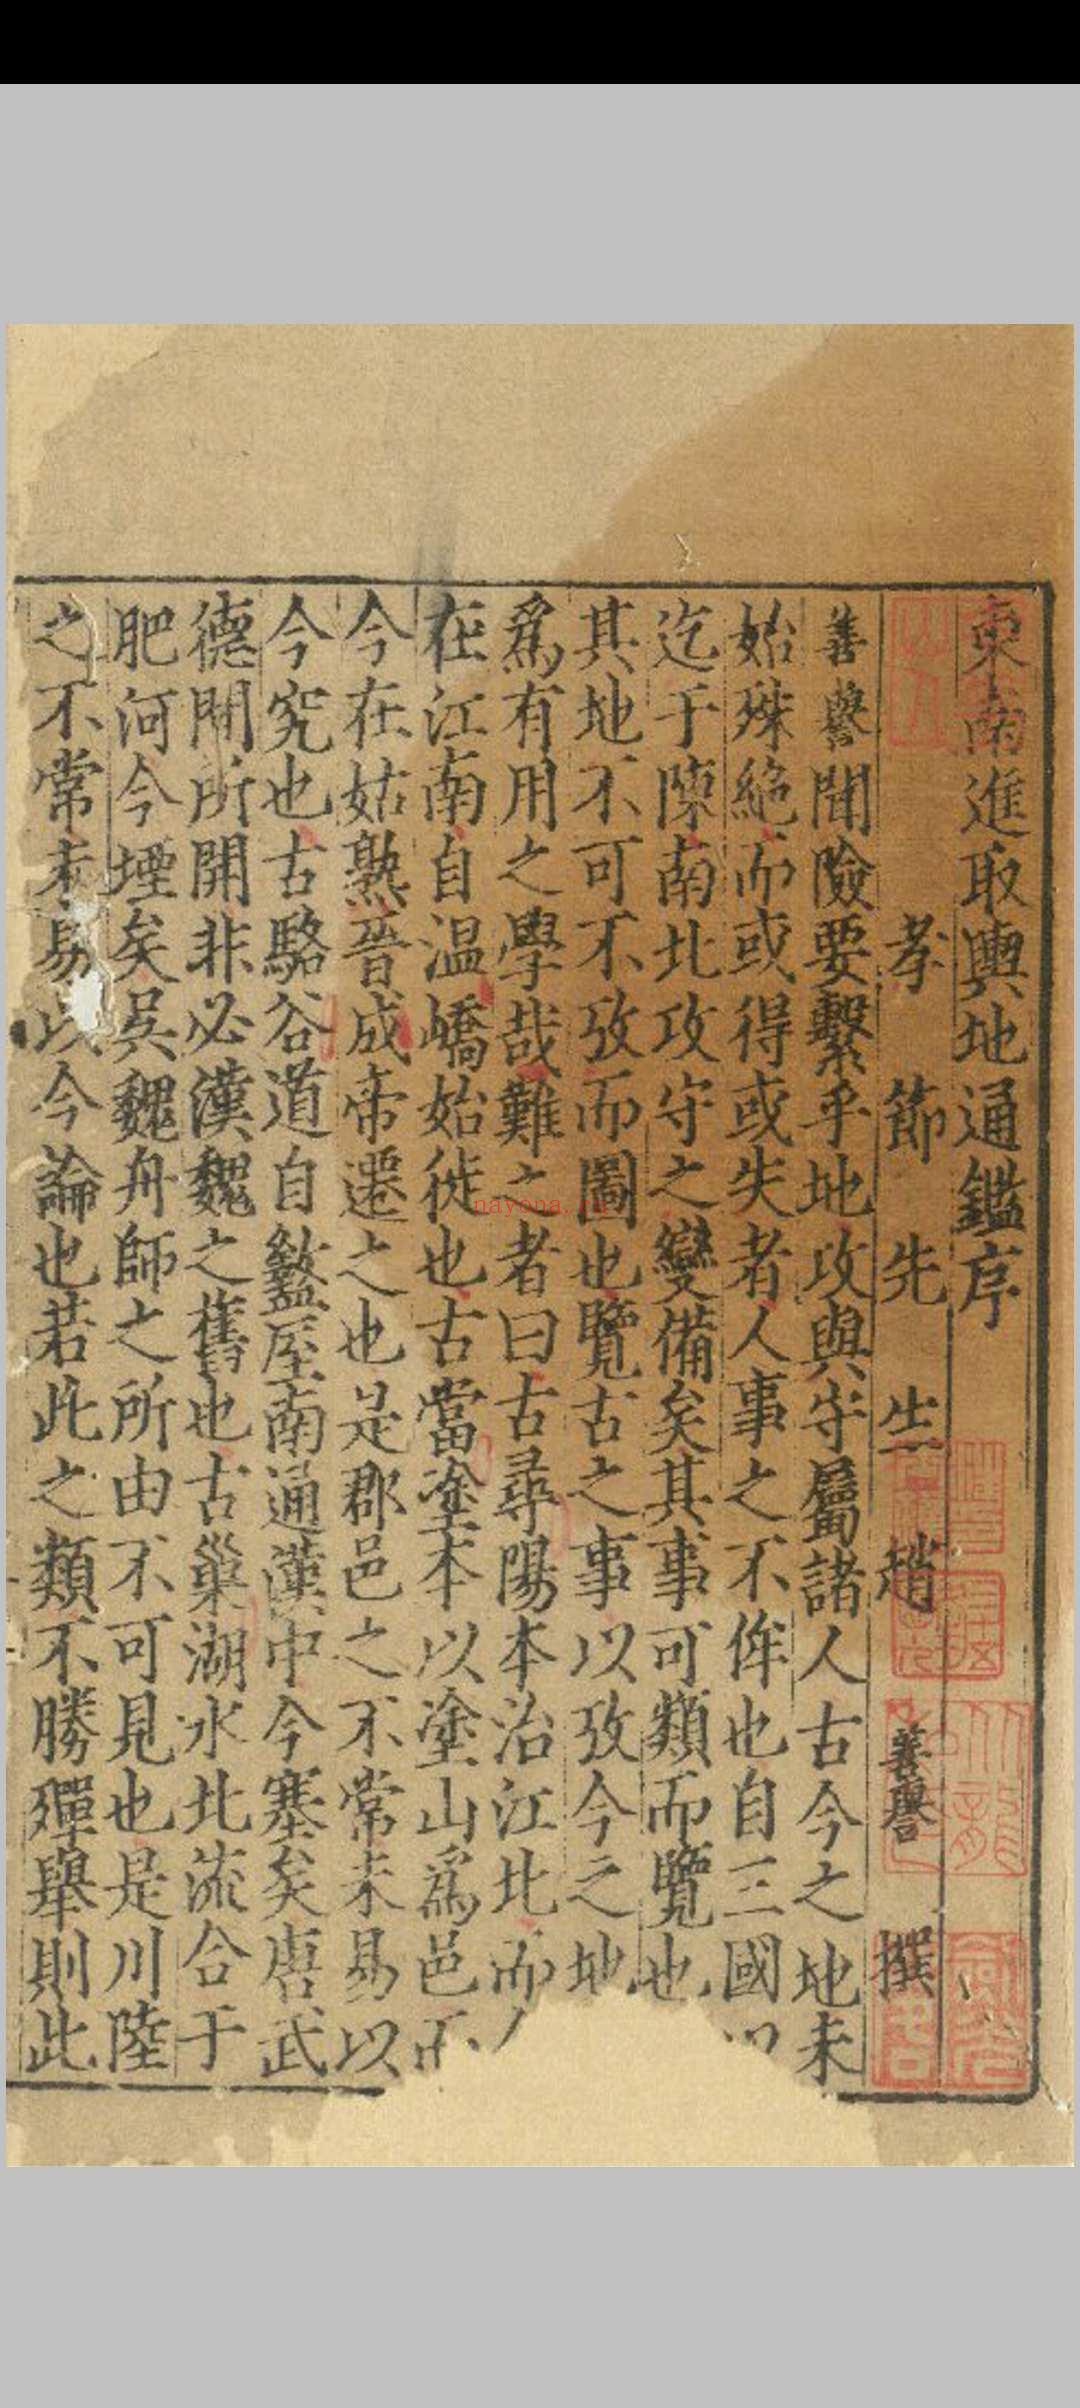 東南進取輿地通鑑序
孝節先生趙善譽撰
善譽聞險要繫乎地攻與守屬諸人古今之地未
始殊絶而或得或失者人事之不侔也自三國以
迄于陳南北攻守之變備矣其事可類而覽也
其地不可不攷而圖也覽古之事以攷今之地
爲有用之學哉難之者曰古尋陽本治江北而
在江南自温嶠始徙也古當塗本以塗山爲邑而
今在姑熟晉成帝遷之也是郡邑之不常未易以
今究也古駱谷道自盩厔南通漢中今塞矣唐武
德開所開非必漢魏之舊也古巢湖水北流合于
肥河今堙矣吳魏舟師之所由不可見也是川陸
之不常未易以今論也若此之類不勝殫舉則此
nayona.